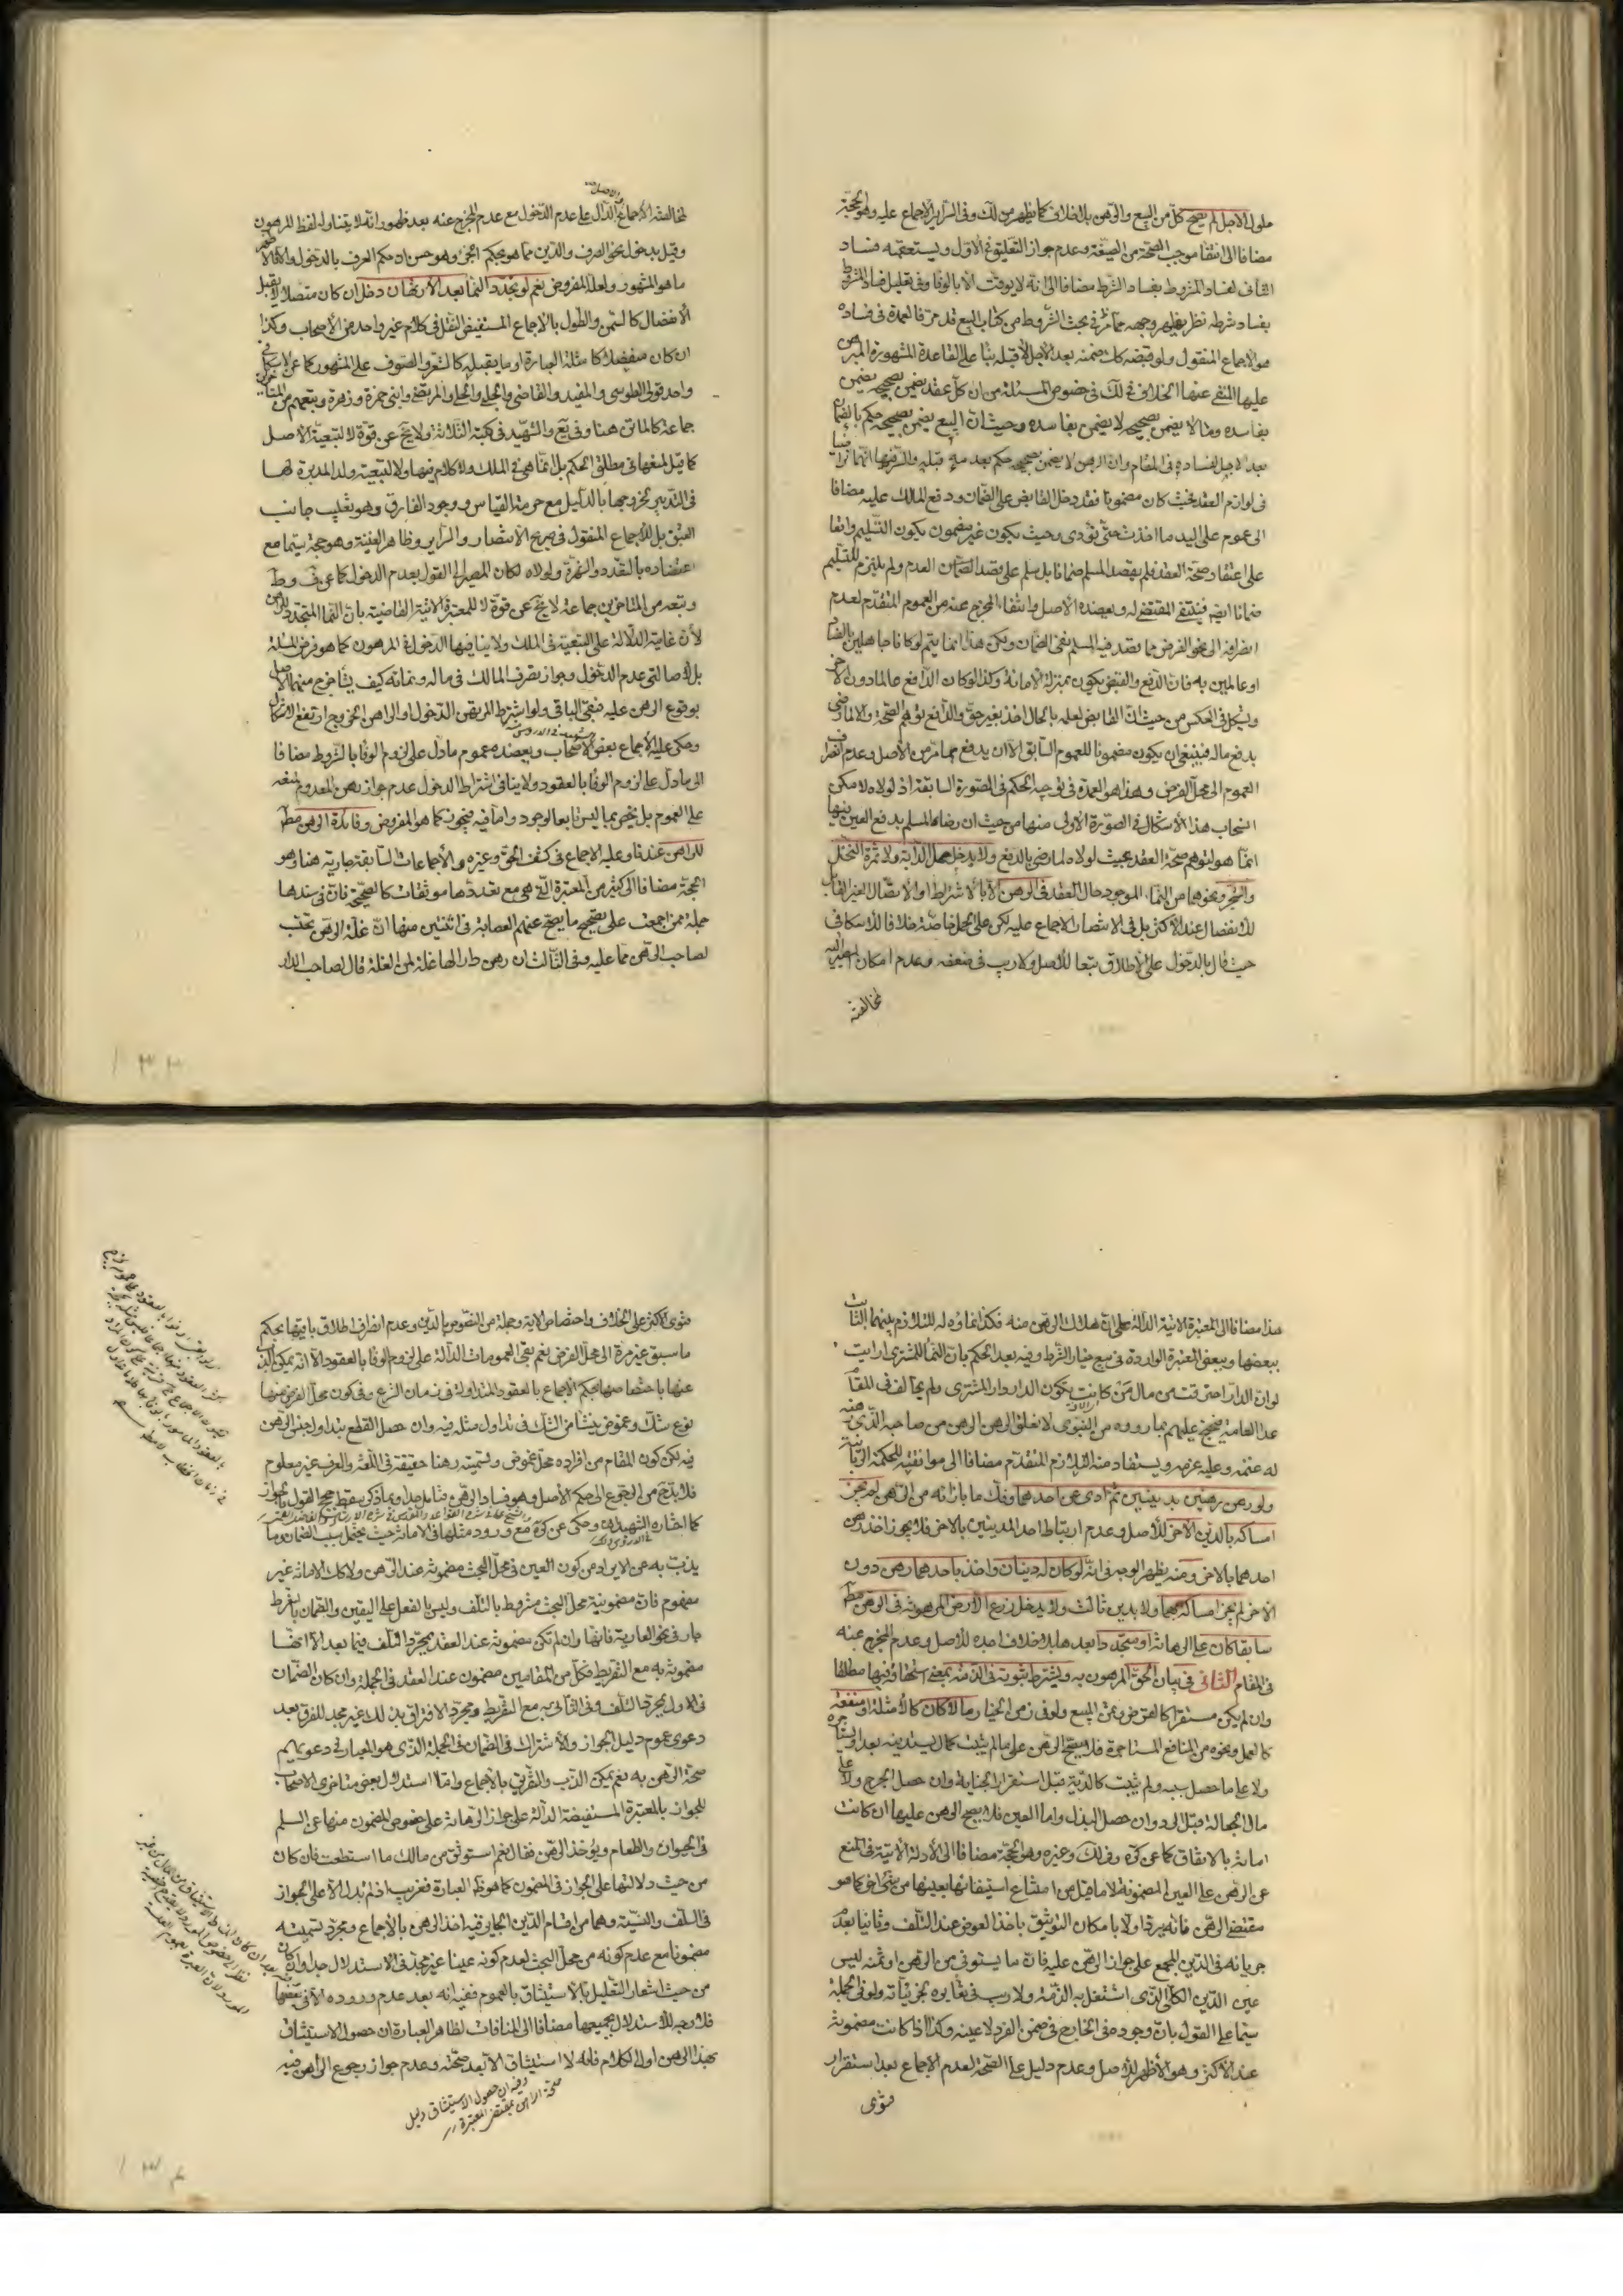 حلول الاجل لم يصح كل من البيع والرهن بلا خلاف كما يظهر من لك وفي السرائر الاجماع عليه وهو الحجة
مضافا الى انتفاء موجب الصحة من الصيغة وعدم جواز التعليق في الاول ويستعقبه فساد
الثاني لفساد المشروط بفساد الشرط مضافا الى انه لا يوقت الا بالوفاء وفي تعليل فساد الشرط
بفساد شرطه نظر يظهر وجهه مما مر في بحث الشروط من كتاب البيع قد مر فالعمدة في فساده
هو الاجماع المنقول ولو قبضه كك ضمنه بعد الاجل لا قبله بناء على القاعدة المشهورة المبرهن
عليها المنفي عنها الخلاف في لك في خصوص المسئلة من ان كل عقد يضمن بصحيحه يضمن
بفاسده وما لا يضمن بصحيحه لا يضمن بفاسده وحيث ان البيع يضمن بصحيحه حكم بالضمان
بعد الاجل لفساده في المقام وان الرهن لا يضمن بصحيحه حكم بعدمه قبله والسر فيها انهما تراضيا
في لوازم العقد فحيث كان مضمونا فقد دخل القابض على الضمان ودفع المالك عليه مضافا
الى عموم على اليد ما اخذت حتى تؤدى وحيث يكون غير مضمون يكون التسليم واقعا
على اعتقاد صحة العقد فلم يقصد المسلم ضمانا بل سلم على قصد الضمان العدم ولم يلتزم المتسلم
ضمانا ايضا فينتفي المقتضي له ويعضده الاصل وانتفاء المخرج عنه من العموم المتقدم لعدم
انصرافه الى نحو الفرض مما يقصد فيه المسلم نفي الضمان ولكن هذا انما يتم لو كانا جاهلين بالفساد
او عالمين به فان الدفع والقبض يكون بمنزلة الامانة وكذا لو كان الدافع عالما دون الآخر
ويشكل في العكس من حيث ان القابض لعلمه بالحال اخذ بغير حق والدافع توهم الصحة والا لما رضي
بدفع ماله فينبغي ان يكون مضمونا للعموم السابق الا ان يدفع بما مر من الاصل وعدم انصراف
العموم الى محل الفرض وهذا هو العمدة في توجيه الحكم في الصورة السابقة اذ لولاه لامكن
انسحاب هذا الاشكال في الصورة الاولى منها من حيث ان رضاء المسلم بدفع العين فيها
انما هو لتوهم صحة العقد بحيث لولاه لما رضي بالدفع ولا يدخل حمل الدابة ولا ثمرة النخل
والشجر ونحوهما من النماء الموجود حال العقد في الرهن الا بالاشتراط او الاتصال الغير القابل
للانفصال عند الاكثر بل في الانتصار الاجماع عليه لكن على الحمل خاصة خلافا للاسكافي
حيث قال بالدخول على الاطلاق تبعا للاصل ولا ريب في ضعفه وعدم امكان المصير اليه
لمخالفته
لمخالفته الاجماع الدال على عدم الدخول مع عدم المخرج عنه بعد ظهور انه لا يتناوله لفظ المرهون
وقيل بدخول نحو الصوف واللبن مما هو بحكم الجزء وهو حسن ان حكم العرف بالدخول والا فالاصح
ما هو المشهور ولعله المفروض نعم لو تجدد النماء بعد الارتهان دخل ان كان متصلا لا يقبل
الانفصال كالسمن والطول بالاجماع المستفيض النقل في كلام غير واحد من الاصحاب وكذا
ان كان منفصلا كما مثله العبارة او ما يقبله كالشعر والصوف على المشهور كما عن الاسكافي
واحد قولي الطوسي والمفيد والقاضي والحلبي والحلي والمرتضى وابني حمزة وزهرة وتبعهم من المتأخرين
جماعة كالماتن هنا وفي يع والشهيد في كتبه الثلاثة ولا يخ عن قوة لا لتبعية الاصل
كما قيل لمنعها في مطلق الحكم بل انما هي في الملك ولا كلام فيها ولا لتبعية ولد المدبرة لها
في التدبير لخروجها بالدليل مع حرمة القياس ووجود الفارق وهو تغليب جانب
العتق بل للاجماع المنقول في صريح الانتصار والسرائر وظاهر الغنية وهو حجة سيما مع
اعتضاده بالتعدد والشهرة ولولاه لكان المصير الى القول بعدم الدخول كما عن ف وط
وتبعه من المتاخرين جماعة لا يخ عن قوة لا للمعتبرة الآتية القاضية بان النماء المتجدد للراهن
لان غايته الدلالة على التبعية في الملك ولا ينافيها الدخول في المرهون كما هو فرض المسئلة
بل لاصالتي عدم الدخول وجواز تصرف المالك في ماله ونمائه كيف يشاء خرج منهما الاصل
بوقوع الرهن عليه فبقي الباقي ولو اشترط المرتهن الدخول او الراهن الخروج ارتفع الاشكال
وحكى عليه الاجماع بعض الاصحاب ويعضده عموم ما دل على لزوم الوفاء بالشروط مضافا
الى ما دل على لزوم الوفاء بالعقود ولا ينافي اشتراط الدخول عدم جواز رهن المعدوم لمنعه
على العموم بل يخص بما ليس تابعا لوجود واما فيه فيجوز كما هو المفروض وفائدة الرهن مط
للراهن عندنا وعليه الاجماع في كشف الحق وغيره والاجماعات السابقة جارية هنا وهو
الحجة مضافا الى كثير من المعتبرة التي هي مع تعددها موثقات كالصحيحة فان في سندها
جملة ممن اجمعت على تصحيح ما يصح عنهم العصابة في اثنتين منها ان غلة الرهن تحتسب
لصاحب الرهن مما عليه وفي الثالث ان رهن دارا لها غلة لمن الغلة قال لصاحب الدار
هذا مضافا الى المعتبرة الآتية الدالة على ان هلاك الرهن منه فكذا نماؤه له للتلازم بينهما الثابت
ببعضها وببعض المعتبرة الواردة في بيع خيار الشرط وفيه بعد الحكم بان النماء للمشتري ارايت
لو ان الدار احترقت من مال من كانت يكون الدار دار المشتري ولم يخالف في المقام
عدا العامة فيحتج عليهم بما رووه من النبوي لا يغلق الرهن الرهن من صاحبه الذي رهنه
له غنمه وعليه غرمه ويستفاد منه التلازم المتقدم مضافا الى موافقته للحكمة الربانية
ولو رهن رهنين بدينين ثم ادى عن احدهما وفك ما بازائه من الرهن لم يجز
امساكه بالدين الآخر للاصل وعدم ارتباط احد الدينين بالاخر فلا يجوز اخذ رهن
احدهما بالاخر ومنه يظهر الوجه في انه لو كان له دينان واخذ باحدهما رهن دون
الآخر لم يجز امساكه بهما ولا بدين ثالث ولا يدخل زرع الارض المرهونة في الرهن مط
سابقا كان على الرهانة او متجددا بعدها بلا خلاف اجده للاصل وعدم المخرج عنه
في المقام الثاني في بيان الحق المرهون به ويشترط ثبوته في الذمة بمعنى استحقاقه فيها مطلقا
وان لم يكن مستقرا كالقرض وثمن المبيع ولو في زمن الخيار مالا كان كالامثلة او منفعة
كالعمل ونحوه من المنافع المستاجرة فلا يصح الرهن على ما لم يثبت كمال يستدينه بعد او يستاجره
ولا على ما حصل سببه ولم يثبت كالدية قبل استقرار الجناية وان حصل الجرح ولا على
مال الجعالة قبل الرد وان حصل البذل واما العين فلا يصح الرهن عليها ان كانت
امانة بالاتفاق كما عن كره وفي لك وغيره وهو الحجة مضافا الى الادلة الآتية في المنع
عن الرهن على العين المضمونة لا ما قيل من امتناع استيفائها بعينها من شيء اخر كما هو
مقتضى الرهن فانه يرد اولا بامكان التوثيق باخذ العوض عند التلف وثانيا بعدم
جريانه في الدين المجمع على جواز الرهن عليه فان ما يستوفى من الرهن او ثمنه ليس
عين الدين الكلي الذي اشتغل به الذمة ولا ريب في تغايره لجزئياته ولو في الجملة
سيما على القول بان وجوده في الخارج في ضمن الفرد لا عينه وكذا اذا كانت مضمونة
عند الاكثر وهو الاظهر للاصل وعدم دليل على الصحة لعدم الاجماع بعد استقرار
فتوى
فتوى الاكثر على الخلاف واختصاص الآية وجملة من النصوص بالدين وعدم انصراف اطلاق باقيها بحكم
ما سبق غير مرة الى محل الفرض نعم بقي العمومات الدالة على لزوم الوفاء بالعقود الا انه يمكن الذب
عنها باختصاصها بحكم الاجماع بالعقود المتداولة في زمان الشرع وفي كون محل الفرض منها
نوع شك وغموض ينشأ من الشك في تداول مثله فيه وان حصل القطع بتداول جنس الرهن
فيه لكن كون المقام من افراده محل غموض وتسميته رهنا حقيقة في اللغة والعرف غير معلوم
فلا بد ح من الرجوع الى حكم الاصل وهو فساد الرهن فتامل جدا وبما ذكر سقط حجج القول بالجواز
كما اختاره الشهيدان وحكى عن كره مع ورود مثلها في الامانة حيث يحتمل سبب الضمان وما
يذب به عن الايراد من كون العين في محل البحث مضمونة عند الرهن ولا كك الامانة غير
مفهوم فان مضمونية محل البحث مشروط بالتلف وليس بالفعل على اليقين والضمان بالشرط
جار في نحو العارية فانها وان لم تكن مضمونة عند العقد بمجرد التلف فيما بعد الا انها
مضمونة به مع التفريط فكل من المقامين مضمون عند العقد في الجملة وان كان الضمان
في الاول بمجرد التلف وفي الثاني به مع التفريط ومجرد الافتراق بذلك غير مجد للفرق بعد
دعوى عموم دليل الجواز والاشتراك في الضمان في الجملة الذي هو المعيار في دعويهم
صحة الرهن به نعم يمكن الذب والفرق بالاجماع واما استدلال بعض متاخري الاصحاب
للجواز بالمعتبرة المستفيضة الدالة على جواز الرهانة على خصوص المضمون منها عن السلم
في الحيوان والطعام ويؤخذ الرهن فقال نعم استوثق من مالك ما استطعت فان كان
من حيث دلالتها على الجواز في المضمون كما هو ظاهر العبارة فغريب اذ لم يدل الا على الجواز
في السلف والنسية وهما من اقسام الدين الجايز فيه اخذ الرهن بالاجماع ومجرد تسميته
مضمونا مع عدم كونه من محل البحث لعدم كونه عينا غير مجد في الاستدلال جدا وان كان
من حيث اشعار التعليل بالاستيثاق بالعموم ففيه انه بعد عدم وروده الا في بعضها
فلا وجه للاستدلال بجميعها مضافا الى المنافات لظاهر العبارة ان حصول الاستيثاق
بهذا الرهن اول الكلام فانه لا استيثاق الا بعد صحته وعدم جواز رجوع الراهن فيه
وفيه ان حصول الاستيثاق دليل
صحة الرهن بمقتضى المعتبرة